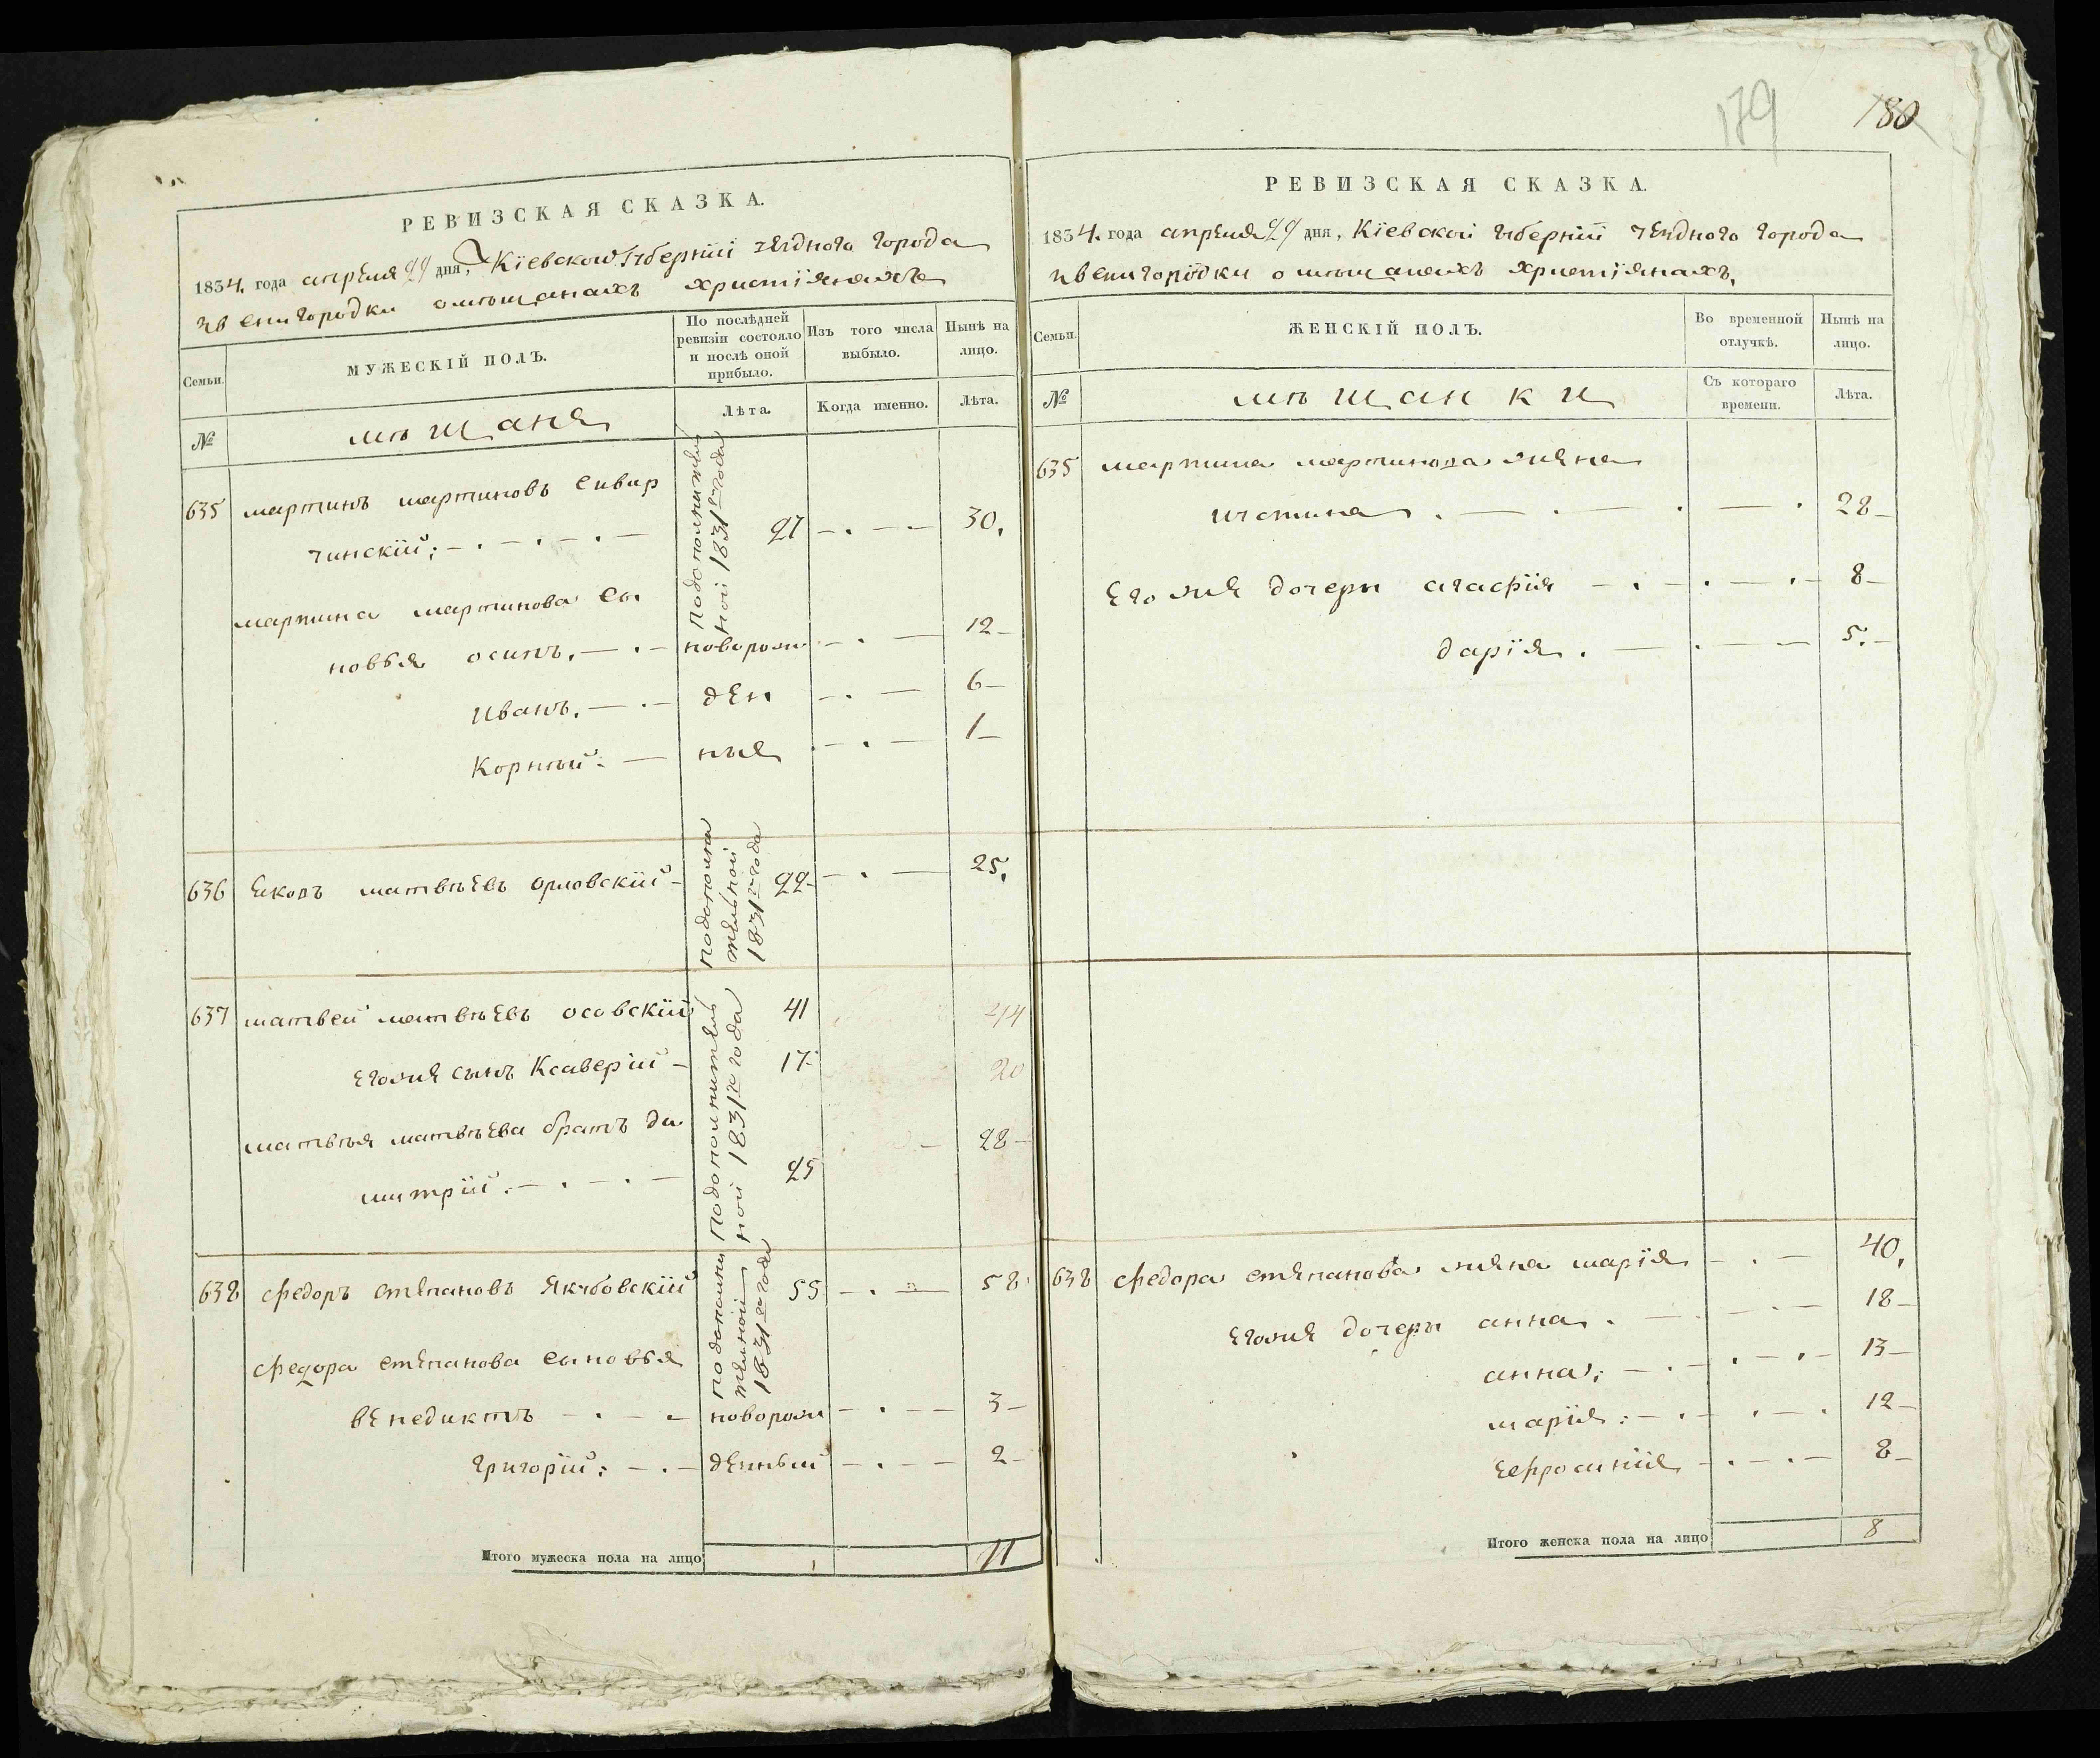 179
180
РЕВИЗСКАЯ СКАЗКА.
1834. года апреля 29 дня, Кіевской Губерніи уезднаго города
звенигородки о мѣщанахъ христіянахъ
Семьи.
МУЖЕСКІЙ ПОЛЪ.
По послѣдней ревизіи состояло и послѣ оной прибыло.
Изъ того числа выбыло.
Нынѣ на лицо.
№
мѣщане
Лѣта.
Когда именно.
Лѣта.
635 мартинъ мартиновъ
чинскій; подополнитель
ной 1831го года 27 30.
мартина мартинова сы
новья осипъ. новорож 12
Иванъ. ден 6
Корнѣй. ныя 1
636 матвѣевъ орловскій подополни
тельной
1831го года 22 25.
637 матвей матвѣевъ осовскій 41 44
его же сынъ Ксаверій 17 20
подополнитель
ной 1831го года
матвѣя матвѣева братъ ди
митрій. 25 28
638 федоръ степановъ Якубовскій подополни
тельной
1831го года 55 58
федора степанова сыновья
венедиктъ новорож 3
григорій; денныи 2
Итого мужеска пола на лицо 11
РЕВИЗСКАЯ СКАЗКА.
1834. года апреля 29 дня, Кіевской губерніи уезднаго города
звенигородки о мѣщанахъ христіянахъ.
Семьи.
ЖЕНСКІЙ ПОЛЪ.
Во временной отлучкѣ.
Нынѣ на лицо.
№
мѣщанки
Съ котораго времени.
Лѣта.
635 мартина мартинова жена
иустина 28
его же дочери агафія 8
дарія. 5.
638 федора степанова жена марія 40.
его же дочери анна. 18
анна; 13
марія; 12
ефросинія 8
Итого женска пола на лицо 8